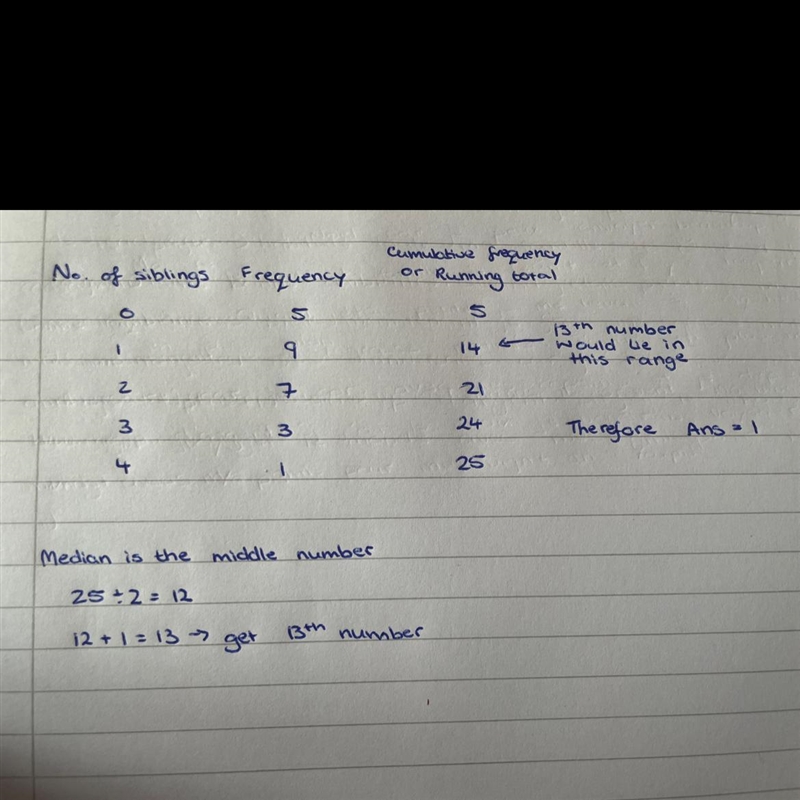 No. of siblings Frequency Cumulative frequency
or Running total
0 5 5
1 9 14 ← 13th number
would lie in
this range
2 7 21
3 3 24 Therefore Ans = 1
4 1 25
Median is the middle number
25 ÷ 2 = 12
12 + 1 = 13 → get 13th number